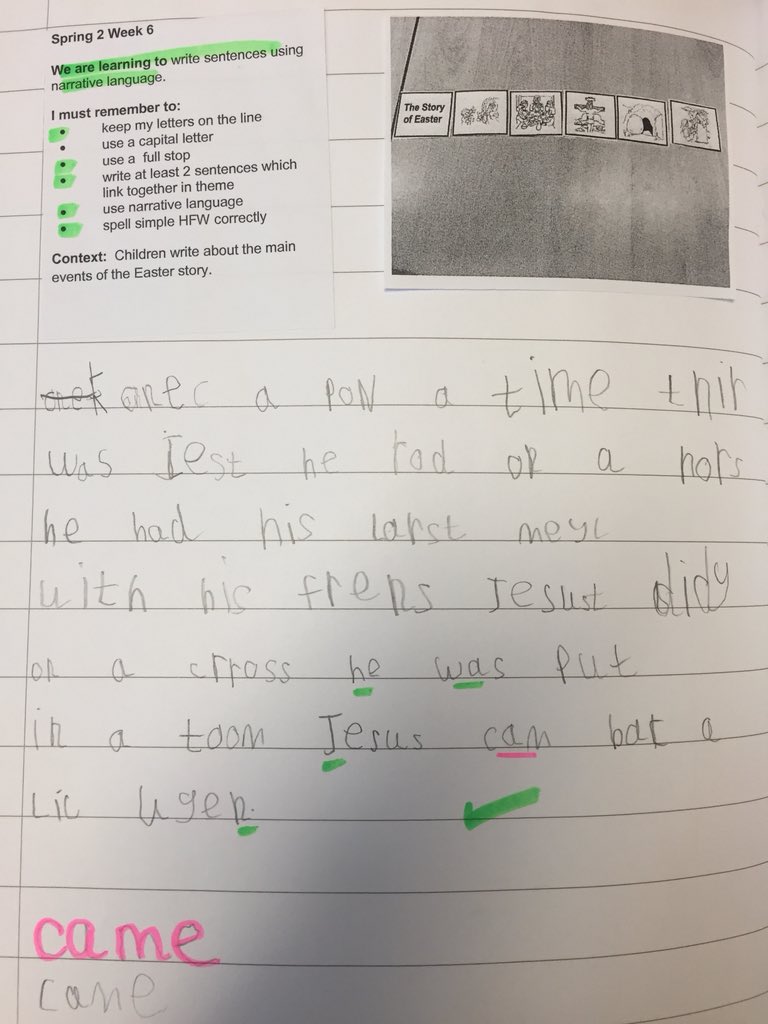 Spring 2 Week 6
We are learning to write sentences using
narrative language.
I must remember to:
• keep my letters on the line
• use a capital letter
• use a full stop
• write at least 2 sentences which
link together in theme
• use narrative language
• spell simple HFW correctly
Context: Children write about the main
events of the Easter story.
The Story
of Easter
onec a poN a time thir
was Jest he rod on a hors
he had his larst meyl
with his frens Jesust didy
on a cross he was put
in a toom Jesus cam bak a
Lic ugen.
came
came